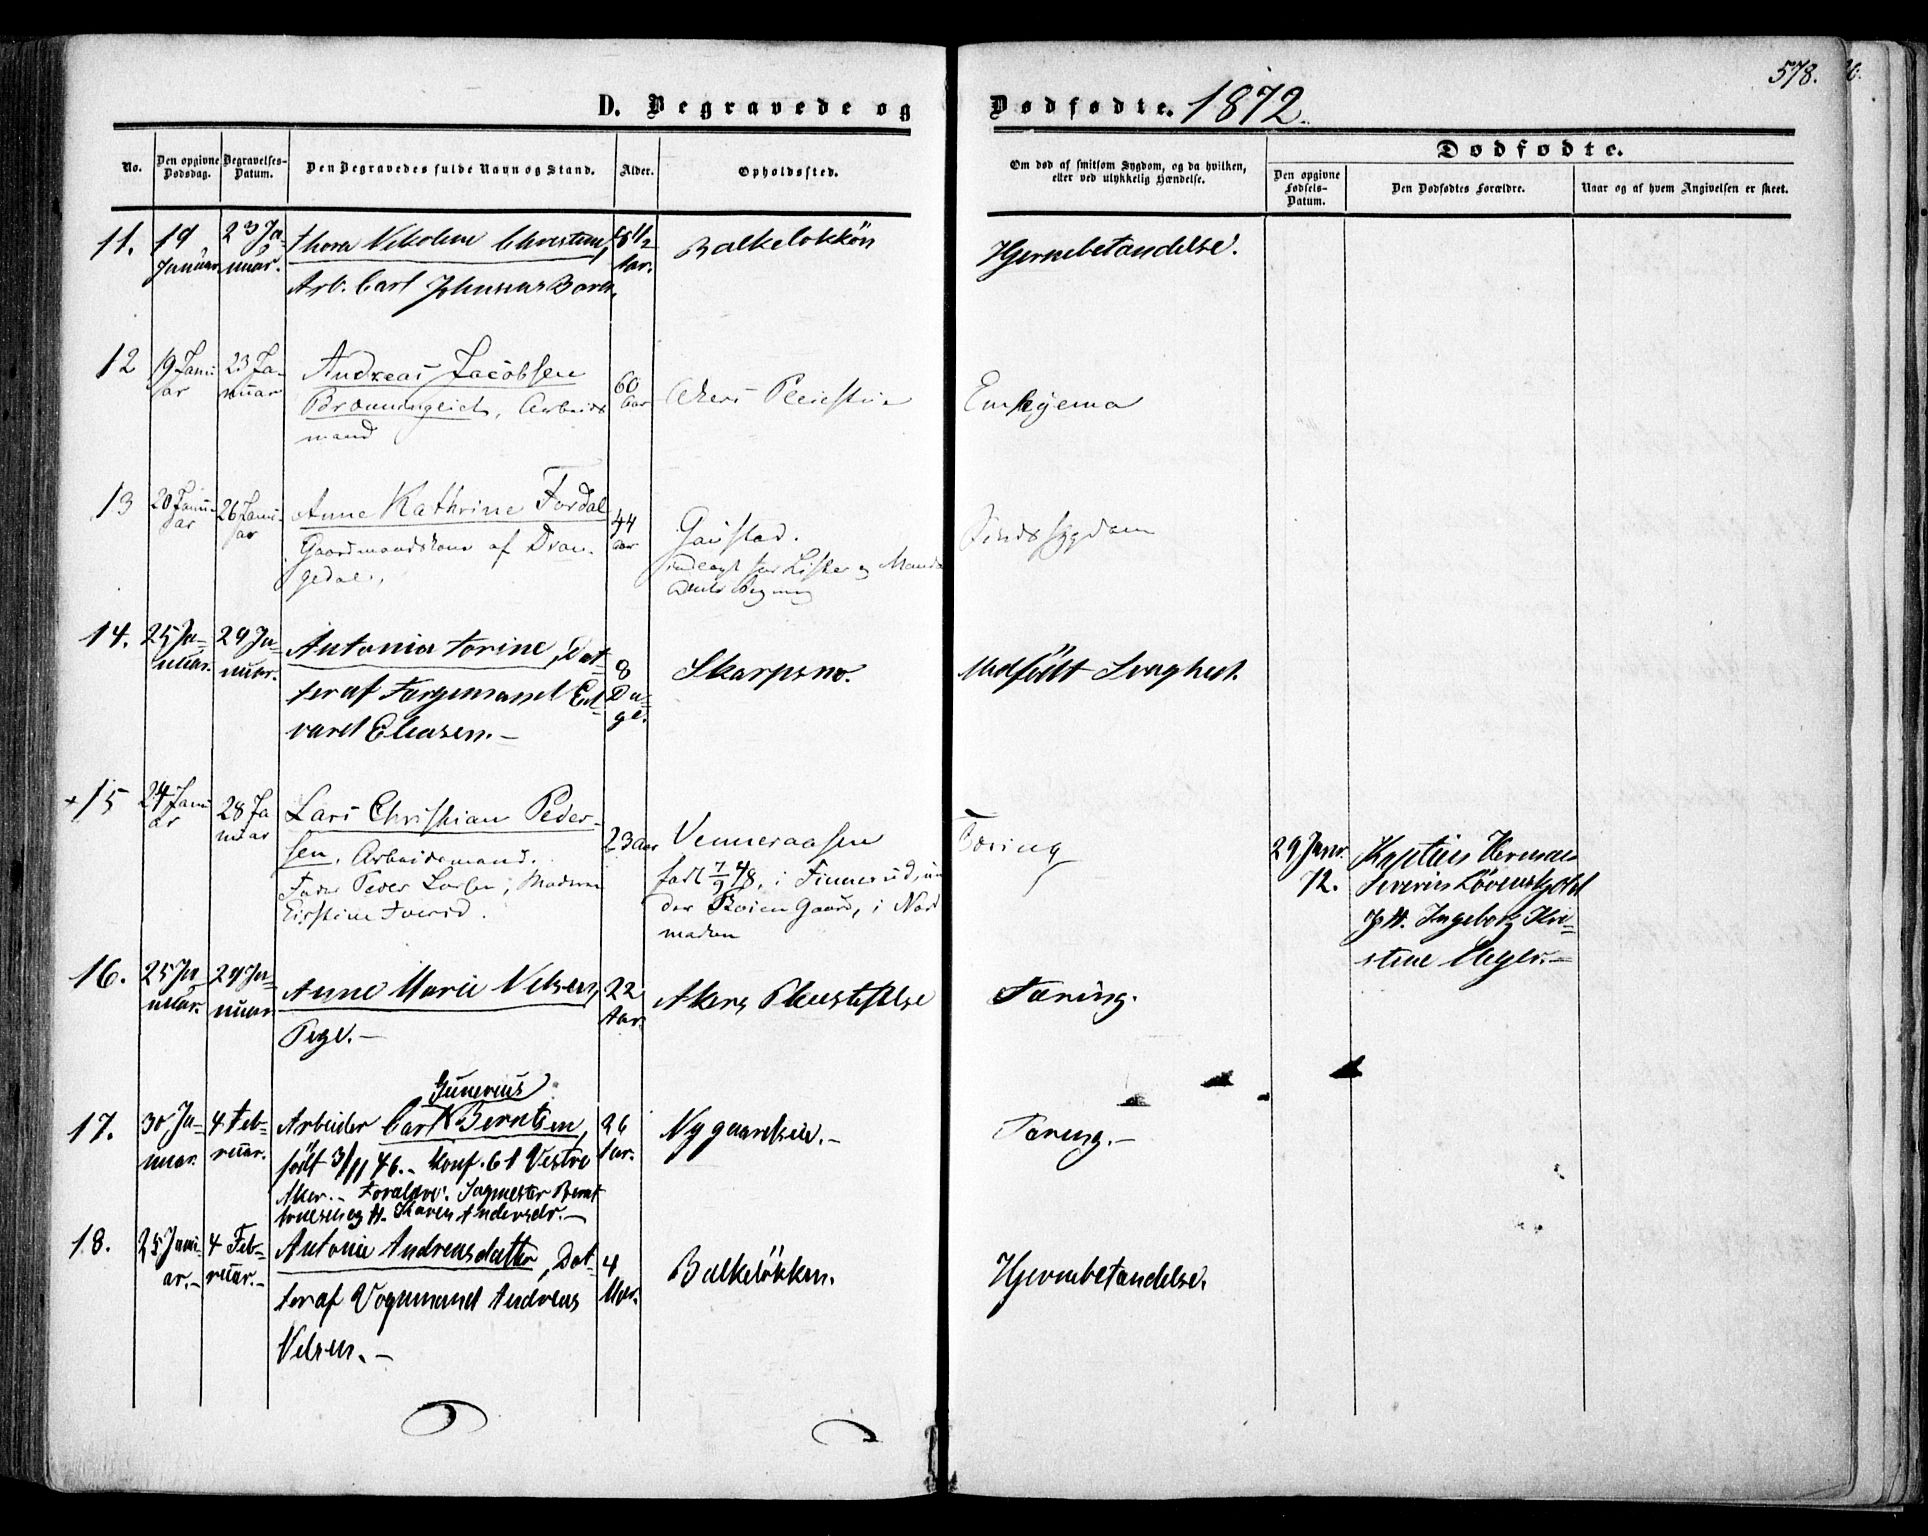 578.
D. Begravede og Dødfødte. 1872.
No.
Den opgivne Dødsdag.
Begravelses-Datum.
Den Begravedes fulde Navn og Stand.
Alder.
Opholdssted.
Om død af smitsom Sygdom, og da hvilken,
eller ved ulykkelig Hændelse.
Dødfødte.
Den opgivne Fødsels-Datum.
Den Dødfødtes Forældre.
Naar og af hvem Angivelsen er skeet.
11. 19 Januar. 23 Ja-
nuar.
Thora Nikoline Christine,
Arb. Carl Johnsens Barn.
Aar.
Balkeløkkön
Hjernebetændelse.
12 19 Janu
ar
23 Ja-
nuar
Andreas Jacobsen
Arbeids
mand
60
Aar
Akers
Empyema
13 20 Janu-
ar
26 Janu-
ar
Anne Kathrine Fordal
Gaardmandskone af Dran-
gedal.
44
Aar
Gaustad.
indlagt for Lister og Manda
Sindssygdom
14. 25 Ja-
nuar.
29 Ja-
nuar.
Antonia Torine, Dat-
ter af Fargemand Ed-
vard Eliasen.-
8
Da-
ge.
Skarpsno.
Medfödt Svaghed.
+15 24 Janu
ar
28 Ja
nuar
Lars Christian Peder-
sen, Arbeidsmand.
Fader Peder Larsen, Moderen
23 Aar
Venneraasen
født 7/9 48, i Finnerud, un
der Gaard, i Nord
marken
Tæring
29 Janr.
72.
Kaptein Herman
Severin Løvenskjold
og H. Ingeborg Kri-
stine Heyer.-
16. 25 Ja-
nuar.
29 Ja-
nuar.
Anne Marie Nilsen,
Pige.-
22
Aar.
Akers Pleiestiftelse
Tæring.
17. 30 Ja-
nuar.
4 Feb-
ruar.
Gunerius
Arbeider Carl Berntsen,
födt 3/11 46.- Konf. 61 Vestre
Aker.- Forældre: Sagmester Bernt
og H. Karen Andersdr.-
26
Aar.
Nygaardseie.-
Tæring.-
18. 25 Janu-
ar.-
4 Feb-
ruar.-
Antonie Andreasdatter, Dat-
ter af Vognmand Andreas
Nilsen.-
4
Balkeløkken.
Hjernebetændelse.